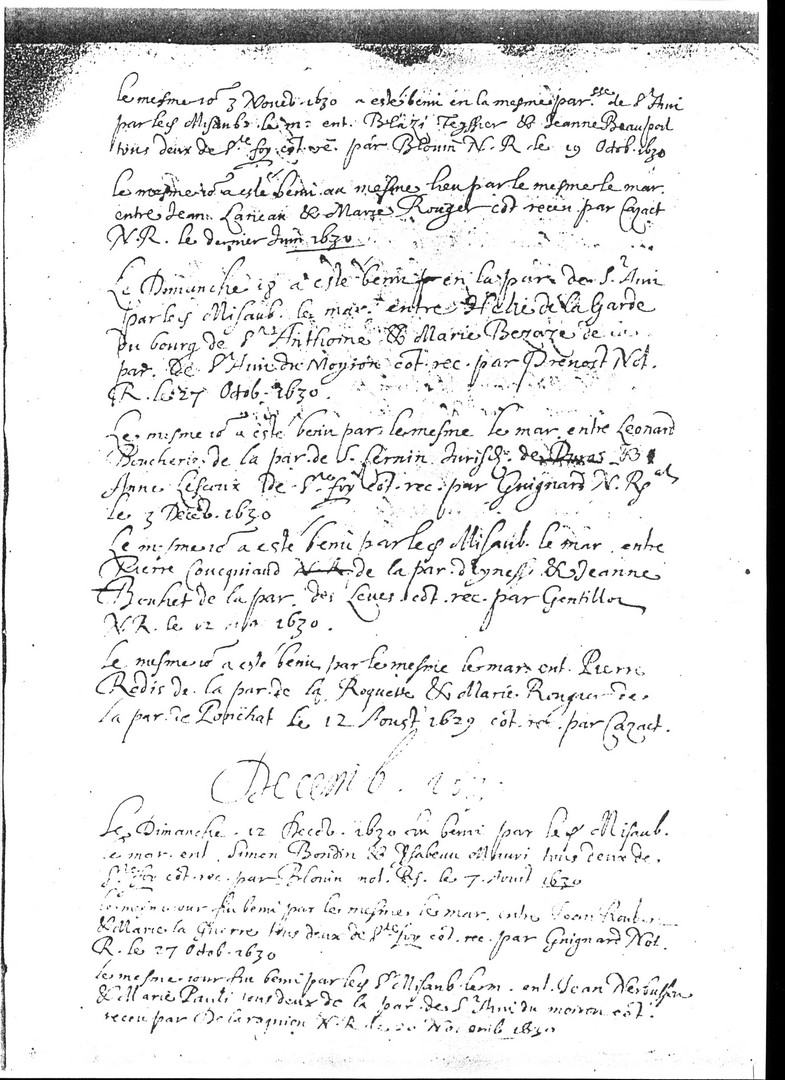 le mesme jo^r 3 Novēb 1630 a esté beni en la mesme par.^sse de S^t Avi
par le S^r Misaub. le m: ent. Blazi Teyssier & Jeanne Beaupoil
tous deux de S^te foy cōt. rec. par Blouin N. R le 19 Octob. 1630
le mesme jo^r a esté beni au mesme lieu par le mesme le mar.
entre Jean Lancau & Marie Rouger cōt receu par Cazact
N. R. le dernier Juin 1630
Le Dimanche a esté beni en la par. de S.^t Avi
par le S^r Misaub. le mar. entre Helie de La Garde
du bourg de S^t Anthoine & Marie de
par. de S^t Avi du Moyron cōt. rec. par Prevost Not.
R. le 27 Octob. 1630.
Le mesme jo^r a esté beni par le mesme le mar. entre Leonard
Boucherie de la par. de S. Sernin Jurisd. de Duras &
Anne de S^te foy cōt. rec. par Guignard N. R
le 3 Decēb. 1630
Le mesme jo^r a esté beni par le S^r Misaub. le mar. entre
Pierre Coucquiaud N. R. de la par. d'Eynesse & Jeanne
Bouhet de la par. des Leves cōt. rec. par Gentillot
N. R. le 12 1630.
Le mesme jo^r a esté beni par le mesme le mar. ent. Pierre
Redis de la par. de la Roquette & Marie Rougier de
la par. de Ponchat le 12 Aoust 1629 cōt. rec. par Cazact.
Decemb.
Le Dimanche 12 Decēb. 1630 fut beni par le S^r Misaub.
le mar. ent. Simon Boudin & Ysabeau Mouri tous deux de
S^te foy cōt. rec. par Blouin not. R. le 7 1630
le mesme jour fut beni par le mesme le mar. entre Jean
& Marie la Guerre tous deux de S^te foy cōt. rec. par Guignard Not.
R. le 27 Octob. 1630
le mesme jour fut beni par le S^r Misaub. le m. ent. Jean
& Marie Pauli tous deux de la par. de S^t Avi du moiron cōt.
receu par N. R. le Novemb. 1630